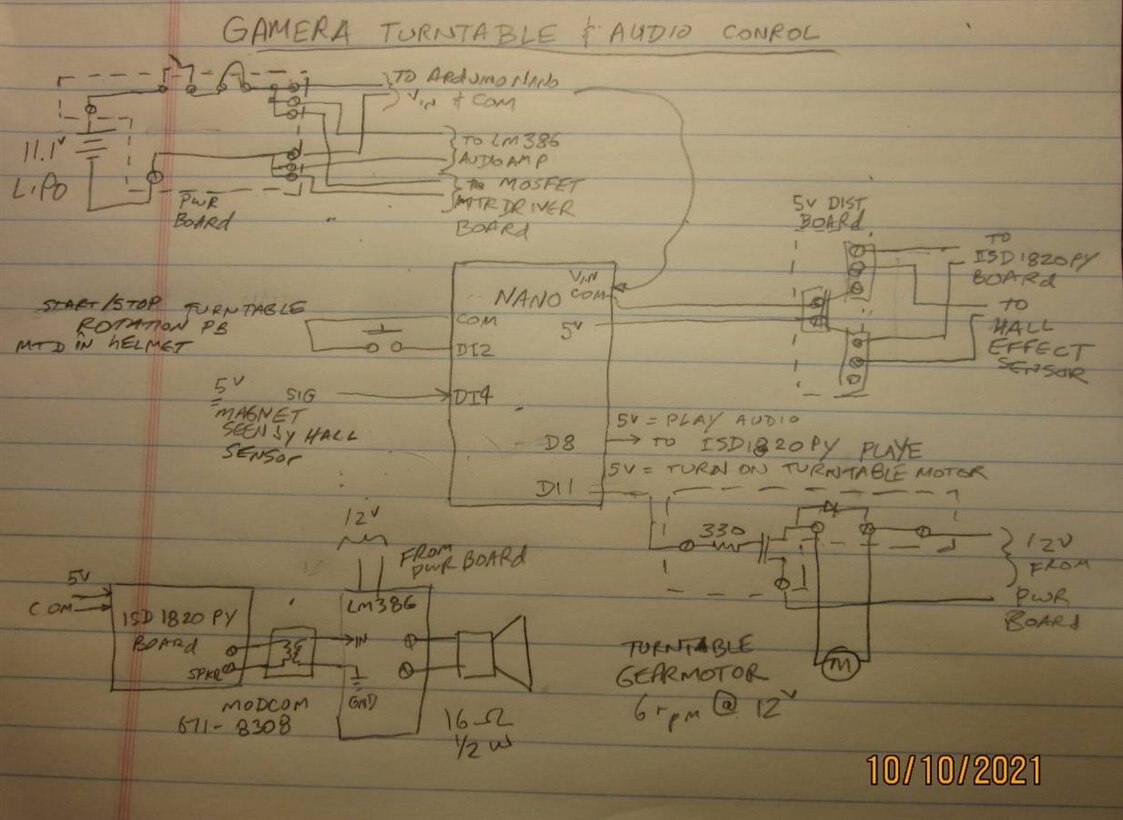 GAMERA TURNTABLE & AUDIO CONROL
TO ARDUINO NANO
VIN & COM
11.1V
LIPO
TO LM386
AUDIO AMP
TO MOSFET
MTR DRIVER
BOARD
PWR
BOARD
5V DIST.
BOARD
TO
ISD1820PY
BOARD
TO
HALL
EFFECT
SENSOR
START/STOP TURNTABLE
ROTATION PB
MTD IN HELMET
VIN
NANO COM
COM
5V
DI2
5V SIG
DI4
MAGNET
SEEN BY HALL
SENSOR
5V = PLAY AUDIO
D8
TO ISD1820PY PLAYE
5V = TURN ON TURNTABLE MOTOR
D11
330
12V
FROM
PWR
BOARD
12V
FROM
PWR BOARD
5V
COM
ISD1820PY
BOARD
SPKR
LM386
IN
GND
MODCOM
671-8308
16Ω
1/2 W
TURNTABLE
GEARMOTOR
6rpm @ 12V
M
10/10/2021